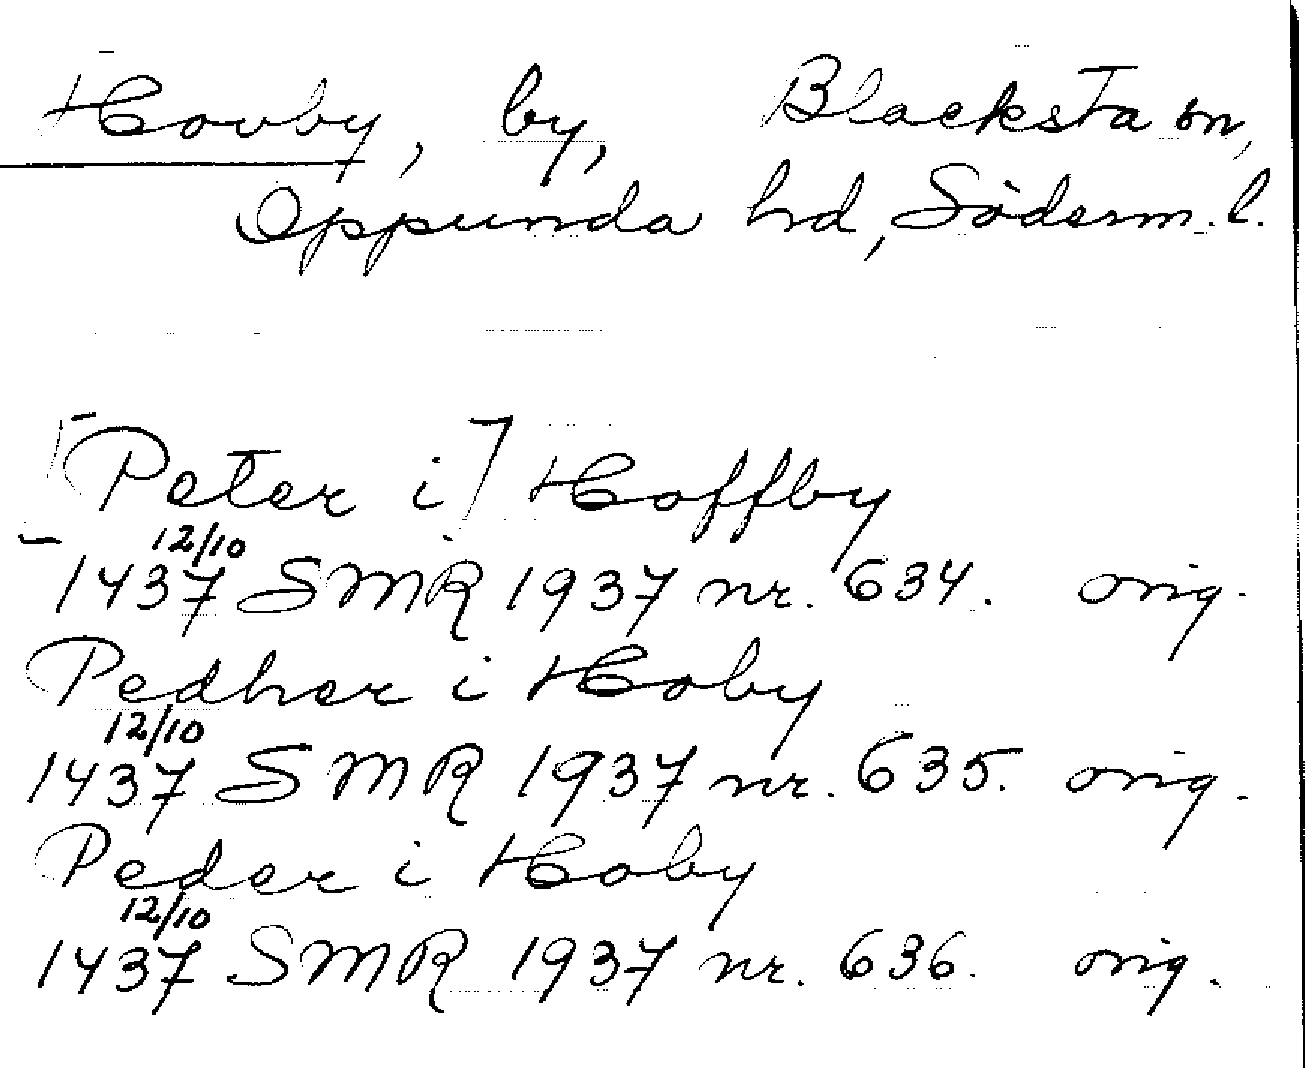 Hovby, by, Blacksta sn,
Oppunda hd, Söderm. l.
[Peter i] Hoffby
12/10
1437 SMR 1937 nr. 634. orig.
Pedher i Hoby
12/10
1437 SMR 1937 nr. 635. orig.
Peder i Hoby
12/10
1437 SMR 1937 nr. 636. orig.